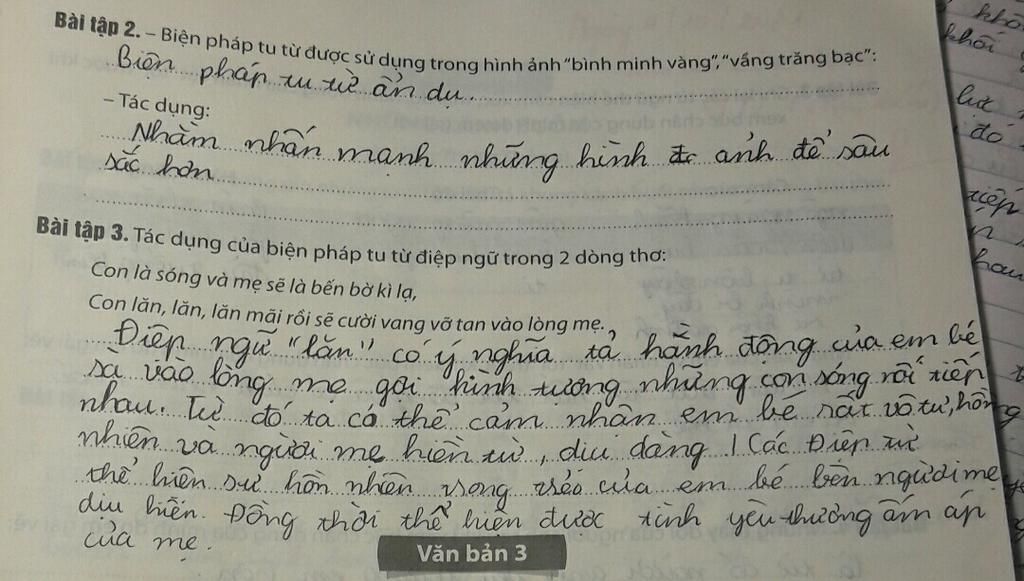 Bài tập 2. – Biện pháp tu từ được sử dụng trong hình ảnh “bình minh vàng”, “vầng trăng bạc”:
Biện pháp tu từ ẩn dụ.
– Tác dụng:
Nhằm nhấn mạnh những hình ảnh để sâu
sắc hơn
Bài tập 3. Tác dụng của biện pháp tu từ điệp ngữ trong 2 dòng thơ:
Con là sóng và mẹ sẽ là bến bờ kì lạ,
Con lăn, lăn, lăn mãi rồi sẽ cười vang vỡ tan vào lòng mẹ.
Điệp ngữ "lăn" có ý nghĩa tả hành động của em bé
sà vào lòng mẹ gợi hình tượng những con sóng nối tiếp
nhau. Từ đó ta có thể cảm nhận em bé rất vô tư, hồng
nhiên và người mẹ hiền từ, dịu dàng / Các Điệp từ
thể hiện sự hồn nhiên trong trẻo của em bé bên người mẹ
dịu hiền. Đồng thời thể hiện được tình yêu thương ấm áp
của mẹ.
Văn bản 3
khổ
khổi
lực
do
tiếp
hau